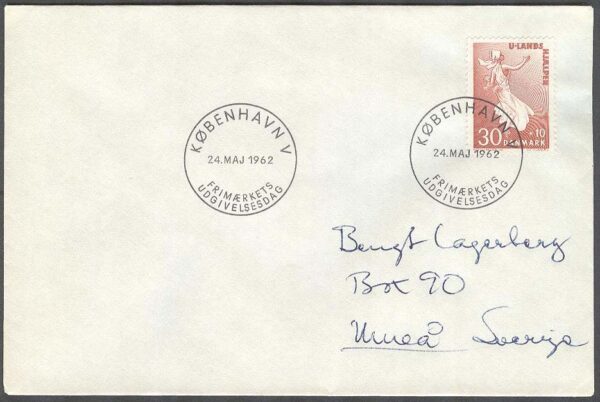 U-LANDS
HJÆLPEN
30 + 10
DANMARK
KØBENHAVN V
24. MAJ 1962
FRIMÆRKETS
UDGIVELSESDAG
KØBENHAVN
24. MAJ 1962
FRIMÆRKETS
UDGIVELSESDAG
Bengt Lagerberg
Box 90
Umeå Sverige